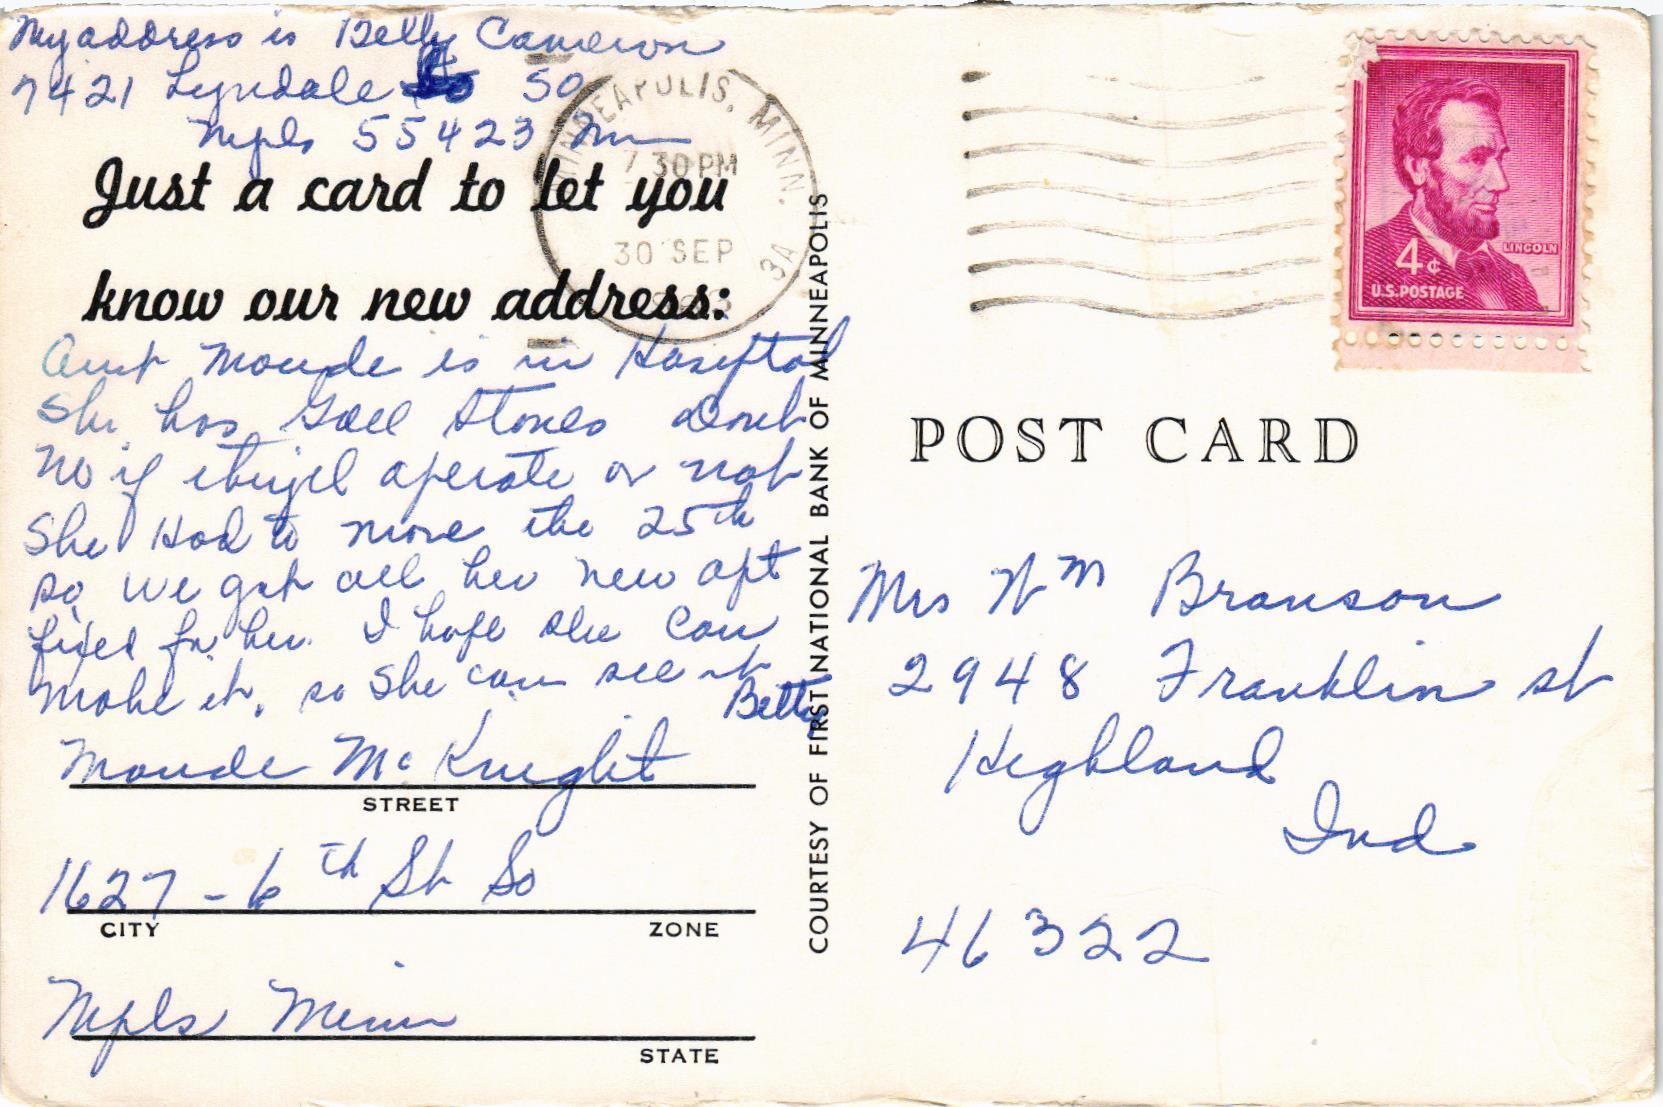 My address is Betty Cameron
7421 Lyndale So
Mpls 55423 Mn
Just a card to let you
know our new address:
Aunt Maude is in Hosiptal
She has Gall Stones Dont
No if they operate or not
She Had to move the 25th
so we got all her new apt
fixed for her. I hope she can
make it, so she can see it
Betty
Maude McKnight
STREET
1627 - 6th St So
CITY ZONE
Mpls Minn
STATE
COURTESY OF FIRST NATIONAL BANK OF MINNEAPOLIS
MINNEAPOLIS, MINN.
7 30 PM
30 SEP
3A
LINCOLN
4¢
U.S. POSTAGE
POST CARD
Mrs Wm Branson
2948 Franklin st
Highland
Ind
46322